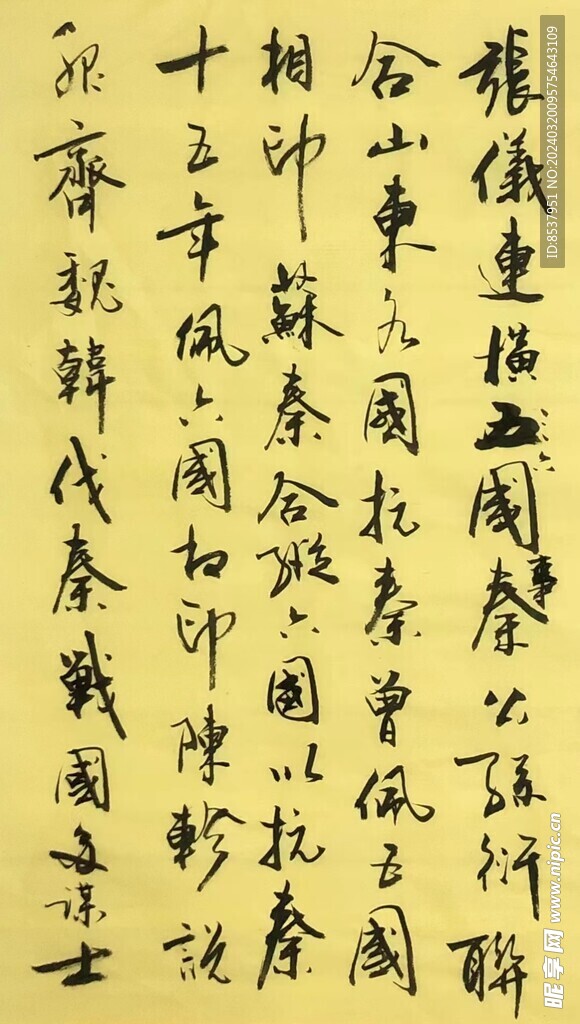 張儀連橫五六國事秦公孫衍聯
合山東各國抗秦曾佩五國
相印蘇秦合縱六國以抗秦
十五年佩六國相印陳軫說
服齊魏韓伐秦戰國多謀士
ID:8537951 NO:20240320095754643109
昵享网 www.nipic.cn